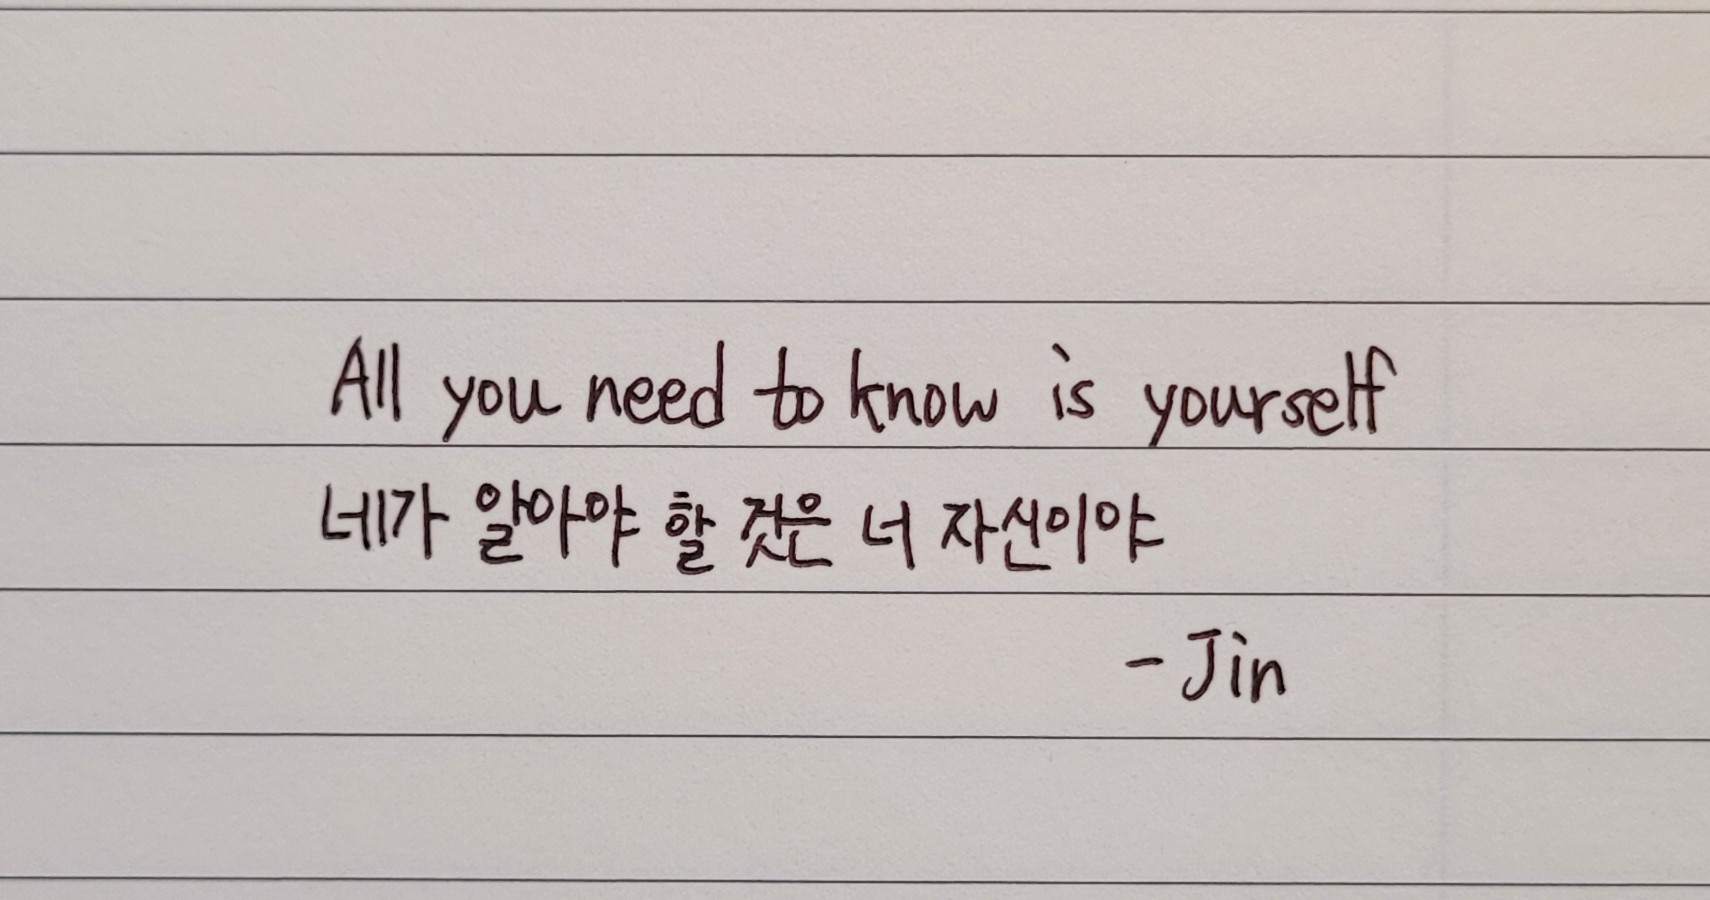 All you need to know is yourself
네가 알아야 할 것은 너 자신이야
- Jin